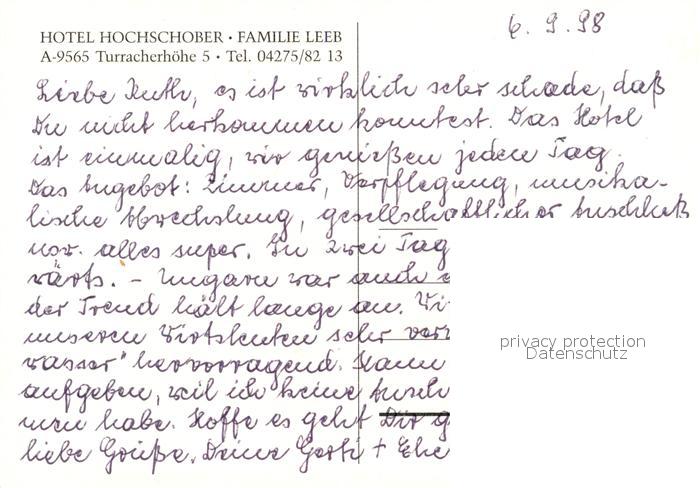 HOTEL HOCHSCHOBER · FAMILIE LEEB
A-9565 Turracherhöhe 5 · Tel. 04275/82 13
6. 9. 98
Liebe Ruth, es ist wirklich sehr schade, daß
Du nicht herkommen konntest. Das Hotel
ist einmalig, wir genießen jeden Tag.
Das Angebot: Zimmer, Verpflegung, musika-
lische Abwechslung, gesellschaftlicher Anschluß
usw. alles super. In zwei Tag
wärts. – Ungarn war auch
der Trend hält lange an. Wi
unseren Wirtsleuten sehr
wasser" hervorragend. Kann
aufgeben, weil ich keine Ansch
men habe. Hoffe es geht Dir g
liebe Grüße, Deine Gerti + Ehe
privacy protection
Datenschutz